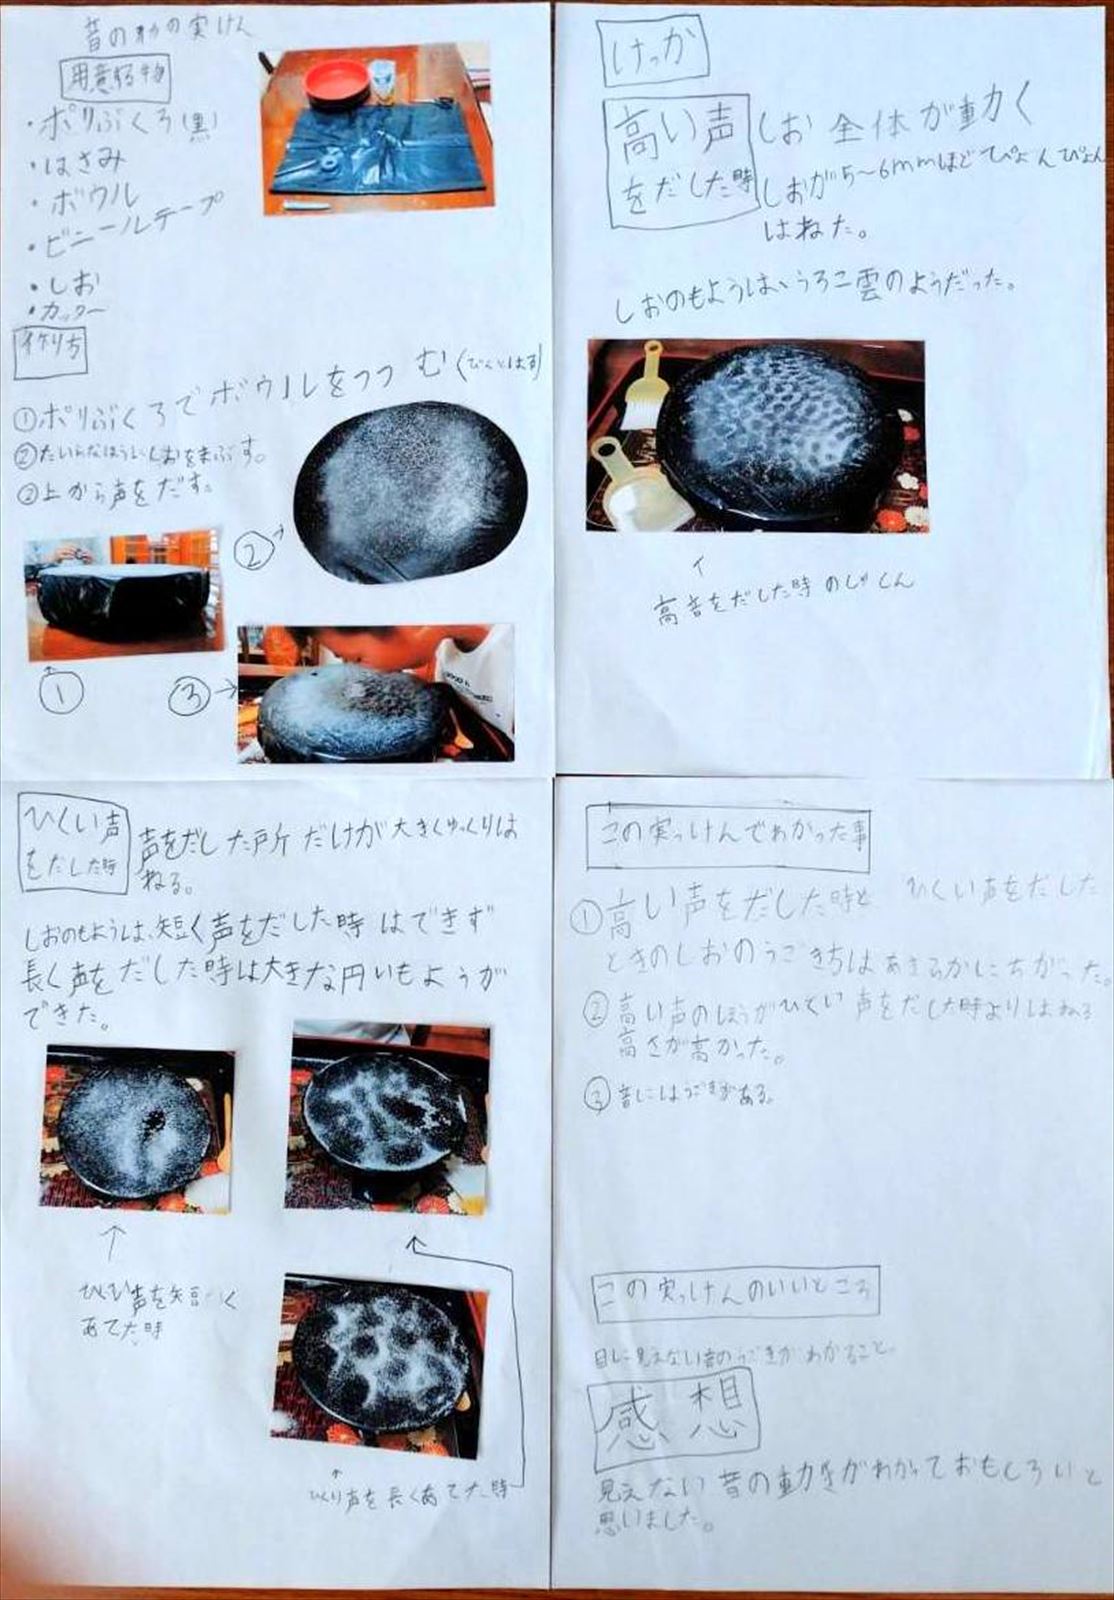 音の力の実けん
用意する物
・ポリぶくろ(黒)
・はさみ
・ボウル
・ビニールテープ
・しお
・カッター
作り方
①ポリぶくろでボウルをつつむ(ぴんとはる)
②たいらなほうにしおをまぶす。
③上から声をだす。
②
①
③
けっか
高い声
をだした時
しお全体が動く
しおが5〜6mmほどぴょんぴょん
はねた。
しおのもようは、うろこ雲のようだった。
高音をだした時の
ひくい声
をだした時
声をだした所だけが大きくゆっくりは
ねる。
しおのもようは、短く声をだした時はできず
長く声をだした時は大きな円いもようが
できた。
ひくい声を短く
あてた時
ひくい声を長くあてた時
この実っけんでわかった事
①高い声をだした時とひくい声をだした
ときのしおのうごき方はあきらかにちがった。
②高い声のほうがひくい声をだした時よりはねる
高さが高かった。
③音にはうごきがある。
この実っけんのいいところ
目に見えない音のうごきがわかること。
感想
見えない音の動きがわかっておもしろいと
思いました。